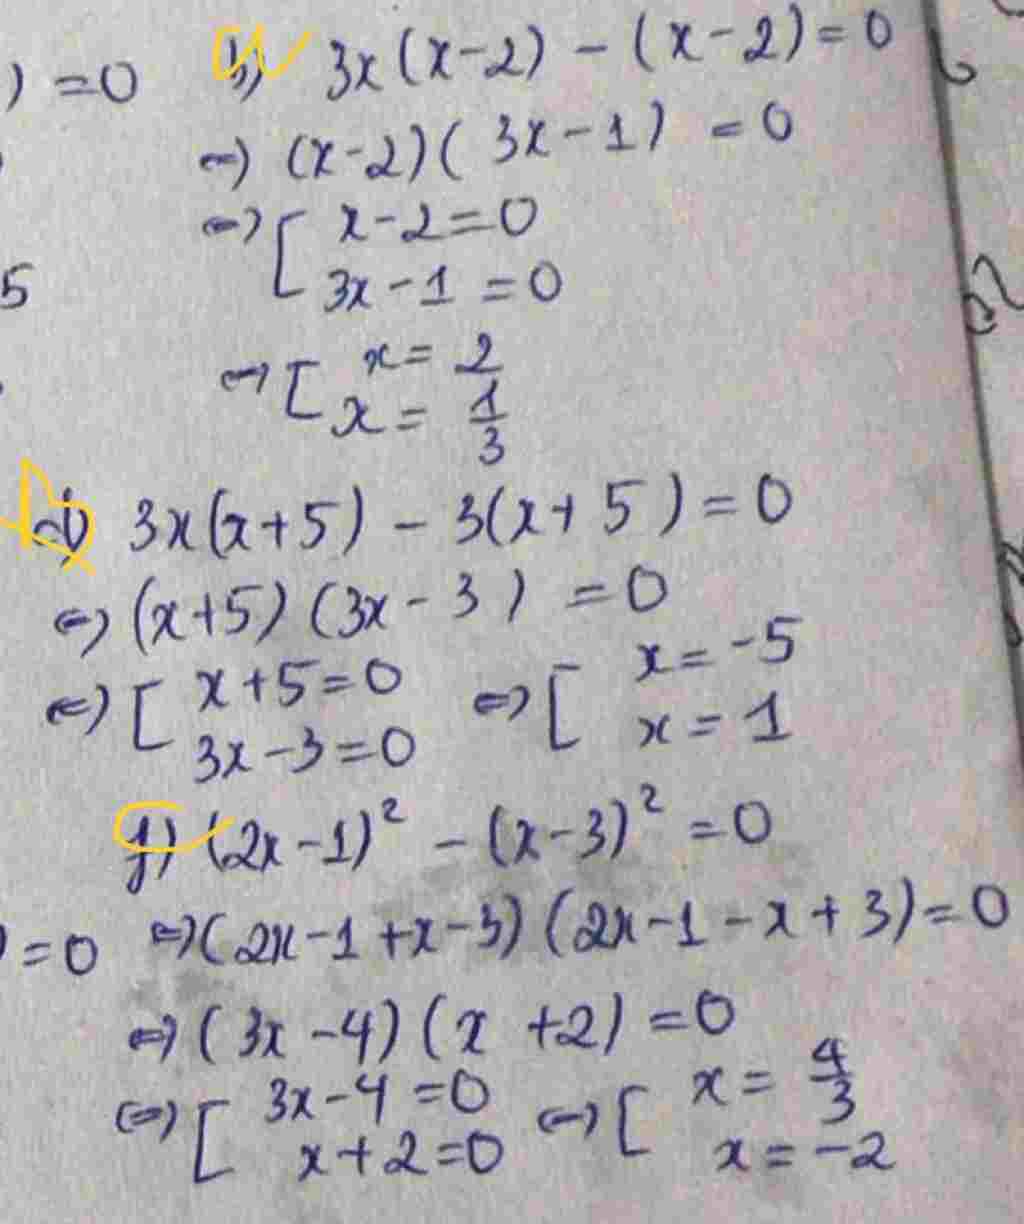 ) = 0
b) 3x(x-2) - (x-2) = 0
⇔ (x-2)(3x-1) = 0
⇔ [ x-2=0
3x-1 = 0
5
⇔ [ x = 2
x = 1/3
d) 3x(x+5) - 3(x+5) = 0
⇔ (x+5)(3x-3) = 0
⇔ [ x+5=0 ⇔ [ x = -5
3x-3=0 x = 1
f) (2x-1)² - (x-3)² = 0
) = 0 ⇔ (2x-1+x-3)(2x-1-x+3) = 0
⇔ (3x-4)(x+2) = 0
⇔ [ 3x-4=0 ⇔ [ x = 4/3
x+2=0 x = -2